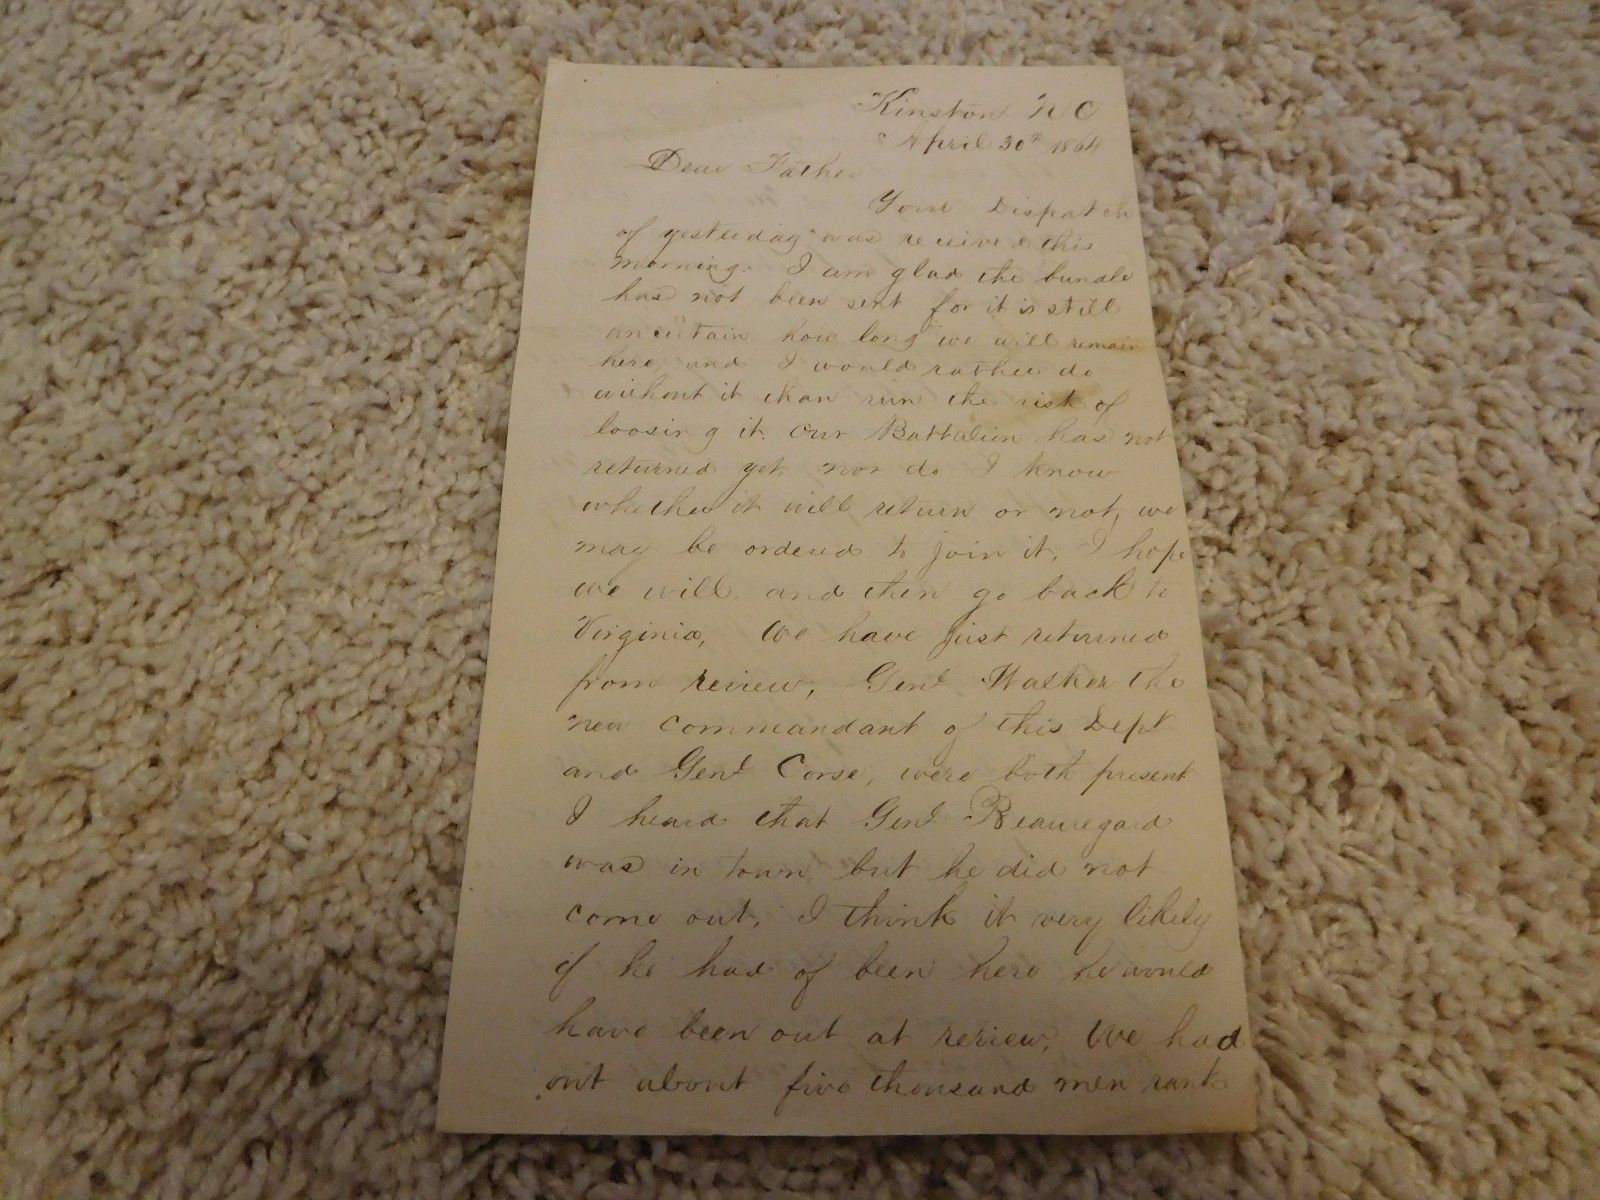 Kinston N C
April 30th 1864
Dear Father
Your Dispatch
of yesterday was received this
morning. I am glad the bundle
has not been sent for it is still
uncertain how long we will remain
here, and I would rather do
without it than run the risk of
loosing it. Our Battalion has not
returned yet, nor do I know
whether it will return or not, we
may be ordered to join it, I hope
we will and then go back to
Virginia, We have just returned
from review, Genl Walker the
new commandant of this Dept
and Genl Corse, were both present
I heard that Genl Beauregard
was in town, but he did not
come out, I think it very likely
if he had of been here he would
have been out at review, We had
out about five thousand men rank